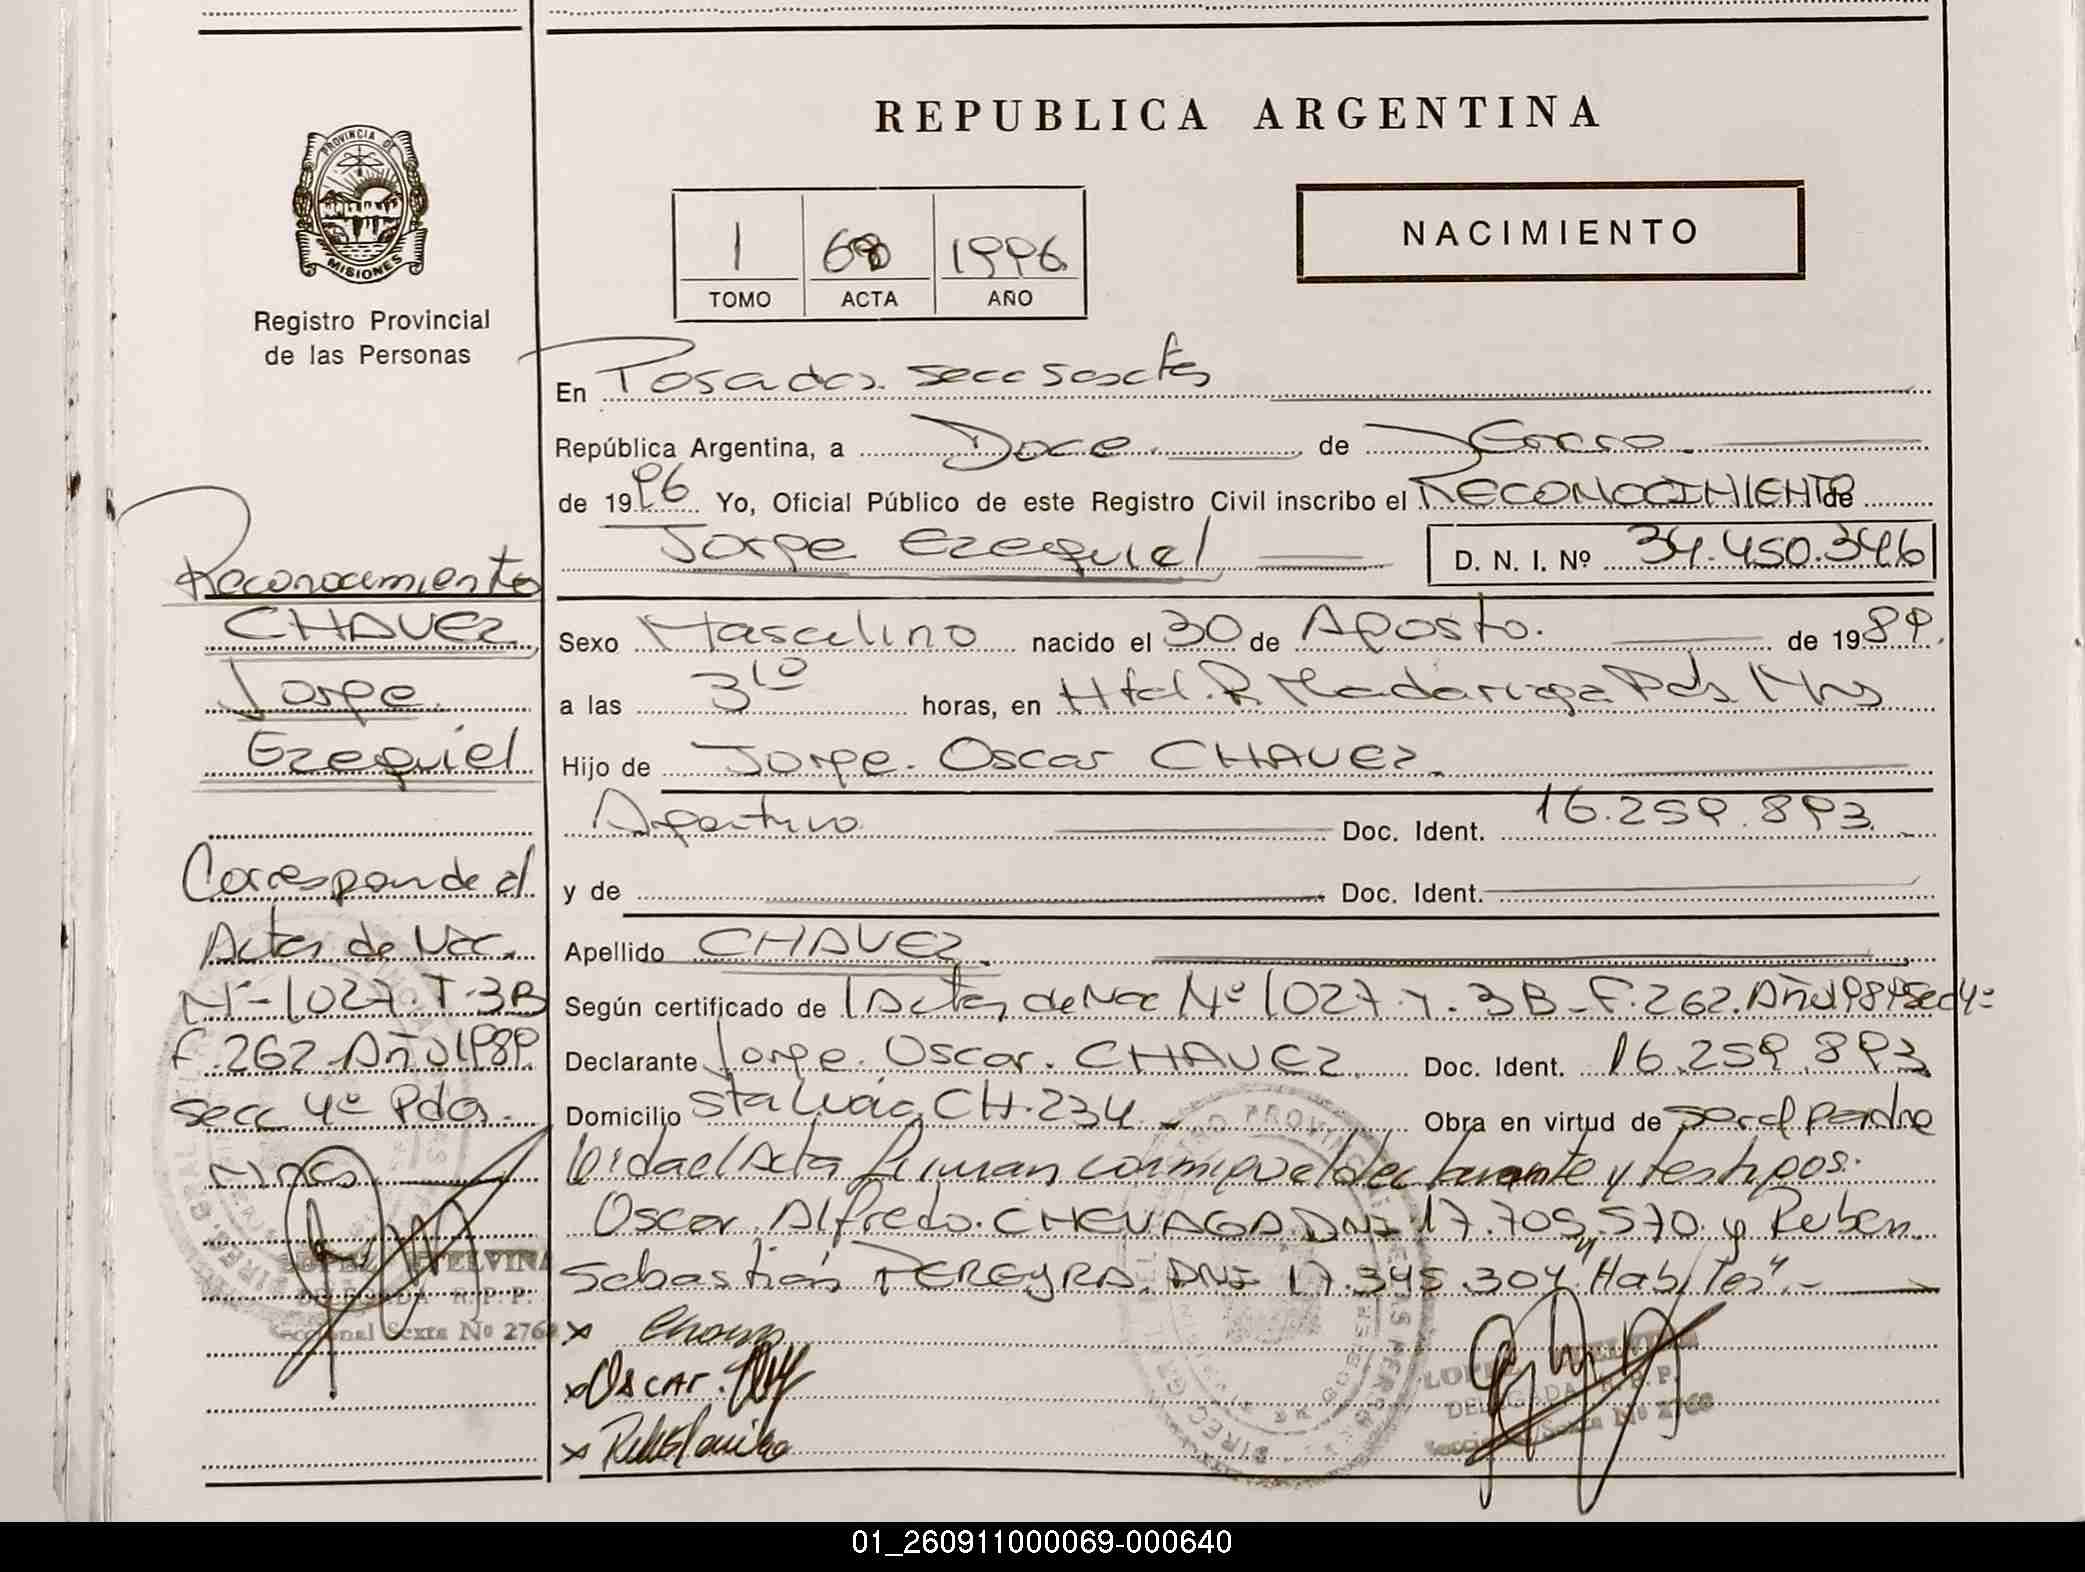 REPUBLICA ARGENTINA
PROVINCIA DE
MISIONES
Registro Provincial
de las Personas
1 68 1996
TOMO ACTA AÑO
NACIMIENTO
En Posadas. Secc sexta
República Argentina, a Doce de Enero
de 1996 Yo, Oficial Público de este Registro Civil inscribo el RECONOCIMIENTO de
Jorge Ezequiel D. N. I. Nº 34.450.346
Sexo Masculino nacido el 30 de Agosto. de 1989.
a las 3 10 horas, en Htal. R. Madariaga Pds Mns
Hijo de Jorge. Oscar CHAVEZ.
Argentino Doc. Ident. 16.259.893
y de Doc. Ident.
Apellido CHAVEZ.
Según certificado de Acta de Nac Nº 1027. T. 3B - F. 262. Año 1989 Secc 4º
Declarante Jorge. Oscar. CHAVEZ. Doc. Ident. 16.259.893
Domicilio Sta Lucia CH. 234 Obra en virtud de ser el padre
leida el Acta firman conmigo el declarante y testigos:
Oscar. Alfredo. DNI 17.709.570. y Ruben
Sebastián PEREYRA. DNI 17.345.304 "Habiles".-
x
x Oscar.
x
Reconocimiento
CHAVEZ
Jorge
Ezequiel
Corresponde al
Acta de Nac.
Nº-1027. T. 3B
F. 262. Año 1989.
Secc 4º Pdas.
Mnes
LOPEZ ELVINA
DELEGADA R. P. P.
Seccional Sexta Nº 2760
LOPEZ ELVINA
DELEGADA R. P. P.
Seccional Sexta Nº 2760
01_260911000069-000640